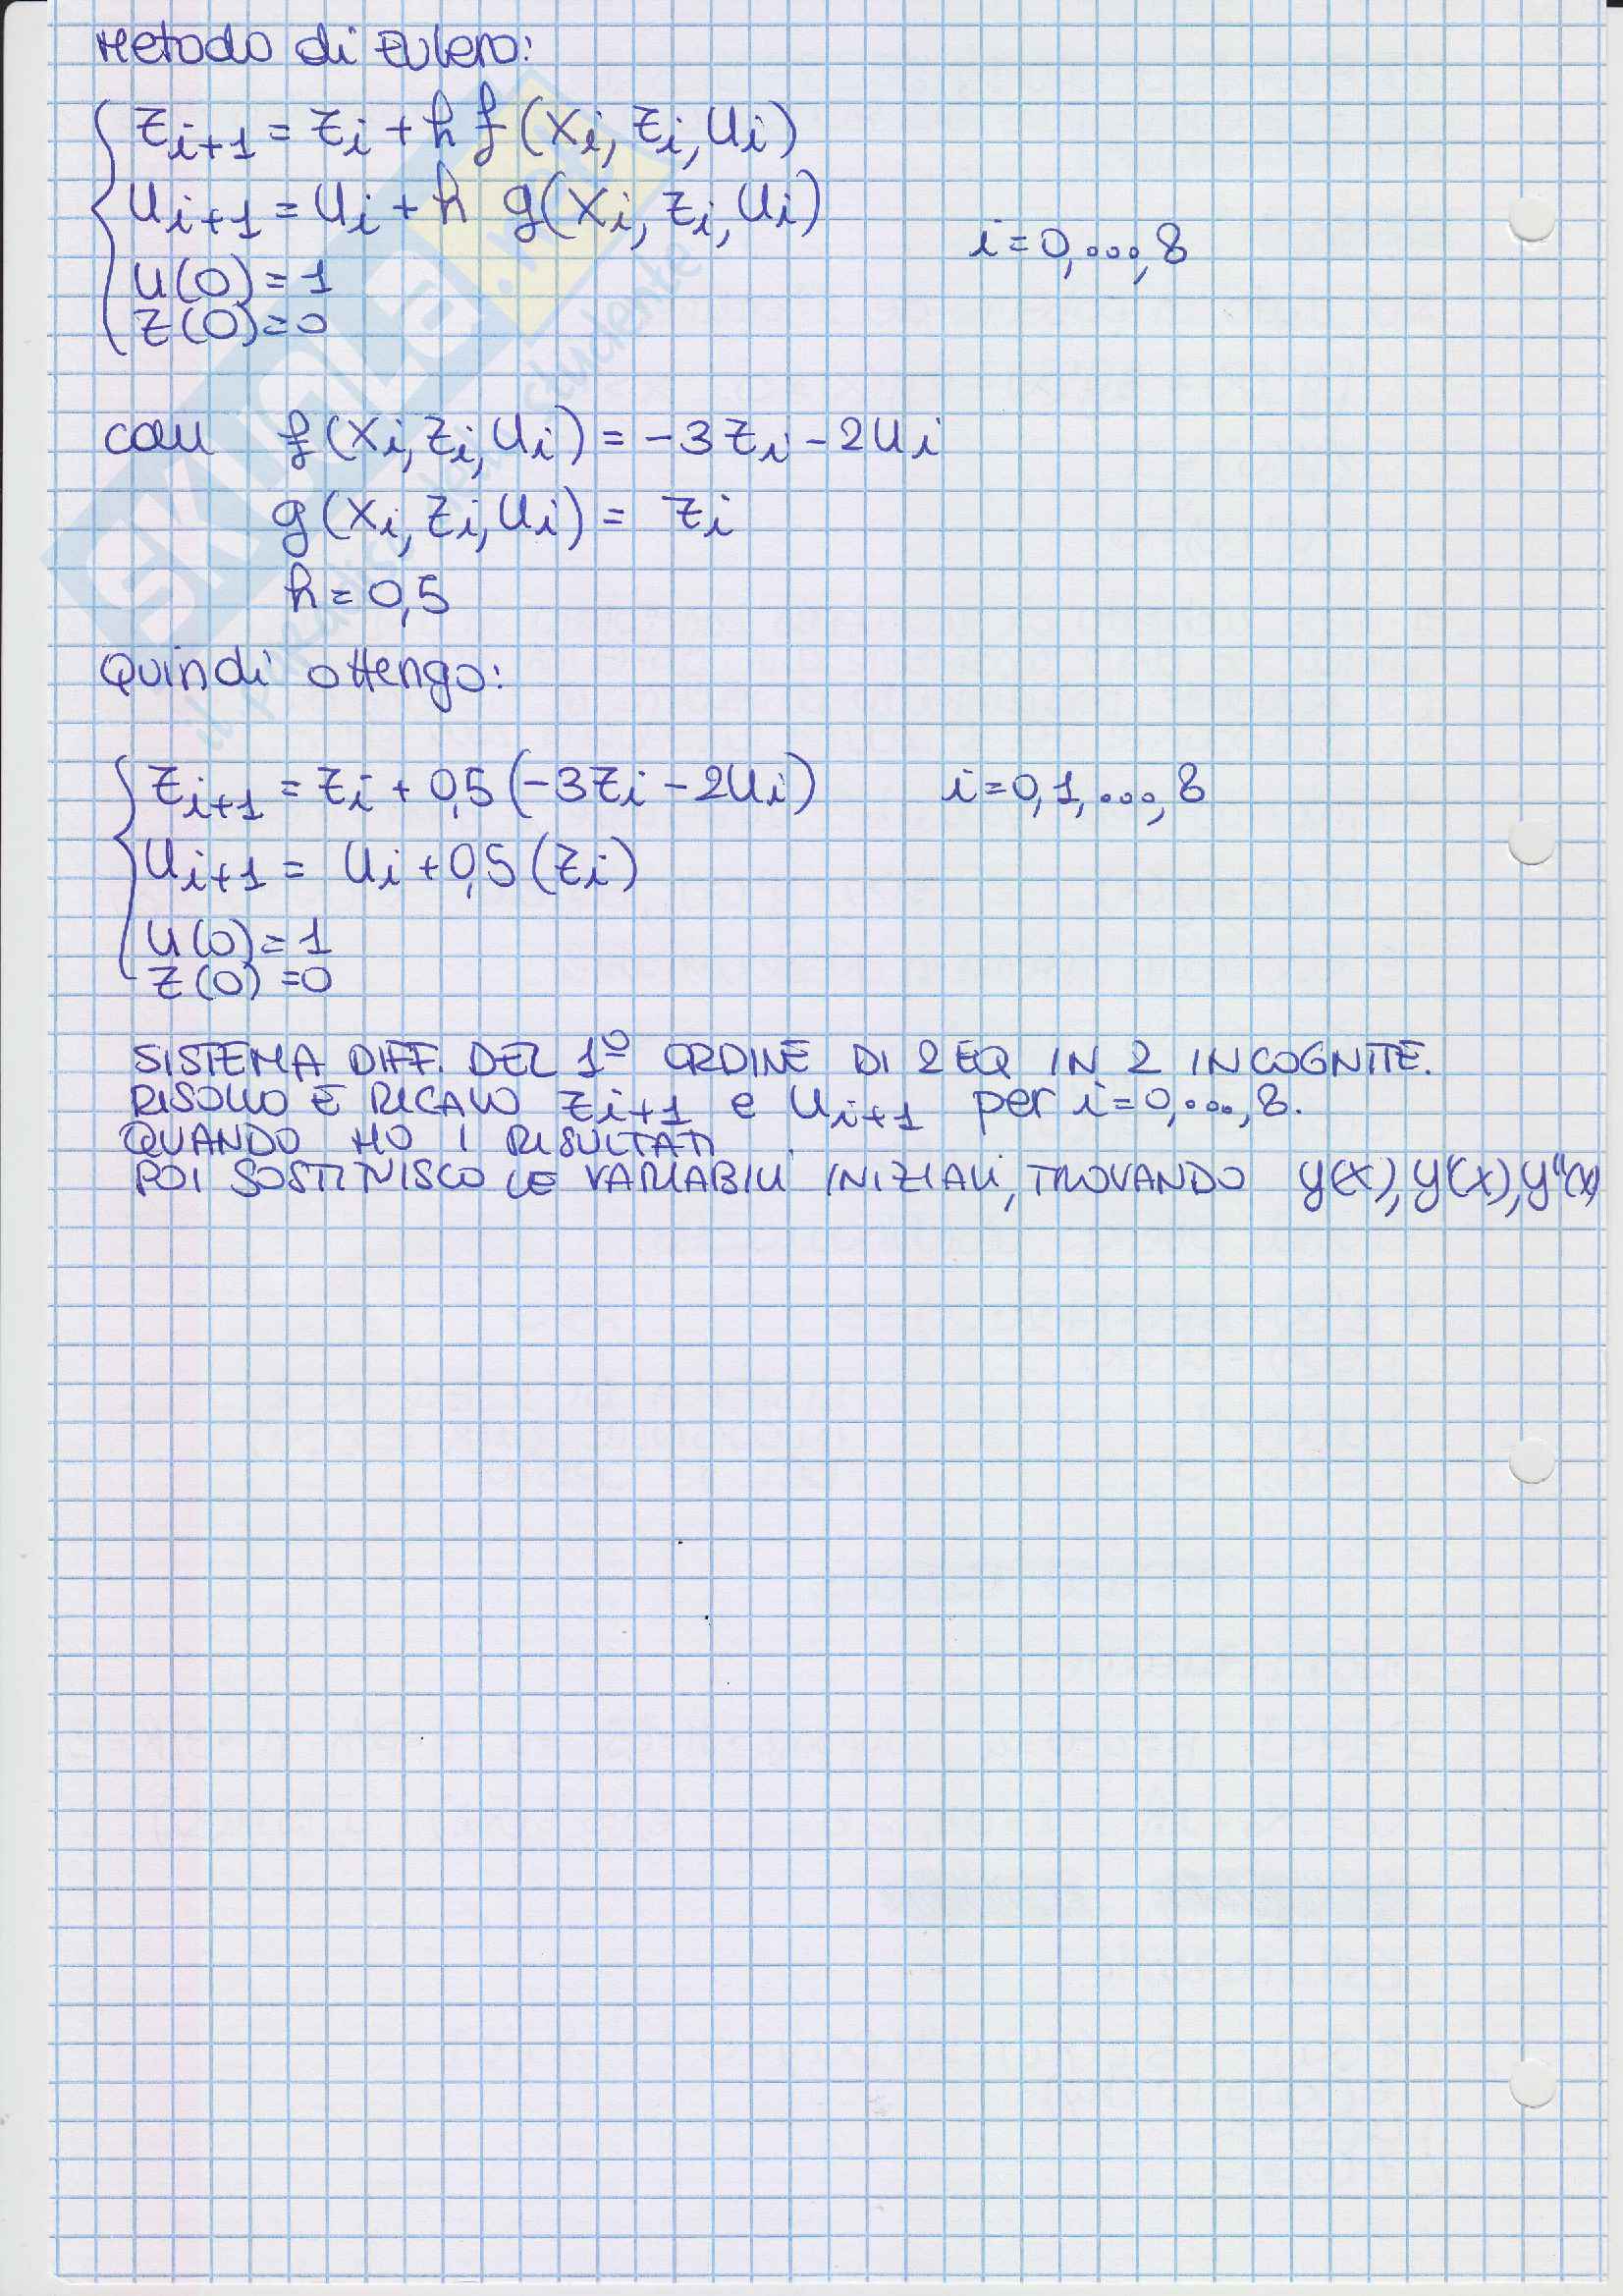 Metodo di Eulero:
z_{i+1} = z_i + h f(x_i, z_i, u_i)
u_{i+1} = u_i + h g(x_i, z_i, u_i)
i=0,...,8
u(0)=1
z(0)=0
con f(x_i, z_i, u_i) = -3z_i - 2u_i
g(x_i, z_i, u_i) = z_i
h=0,5
Quindi ottengo:
z_{i+1} = z_i + 0,5(-3z_i - 2u_i) i=0,1,...,8
u_{i+1} = u_i + 0,5(z_i)
u(0)=1
z(0)=0
SISTEMA DIFF. DEL 1º ORDINE DI 2 EQ IN 2 INCOGNITE.
RISOLVO E RICAVO z_{i+1} e u_{i+1} per i=0,...,8.
QUANDO HO I RISULTATI
POI SOSTITUISCO LE VARIABILI INIZIALI, TROVANDO y(x), y'(x), y''(x)
SKUOLA
.net